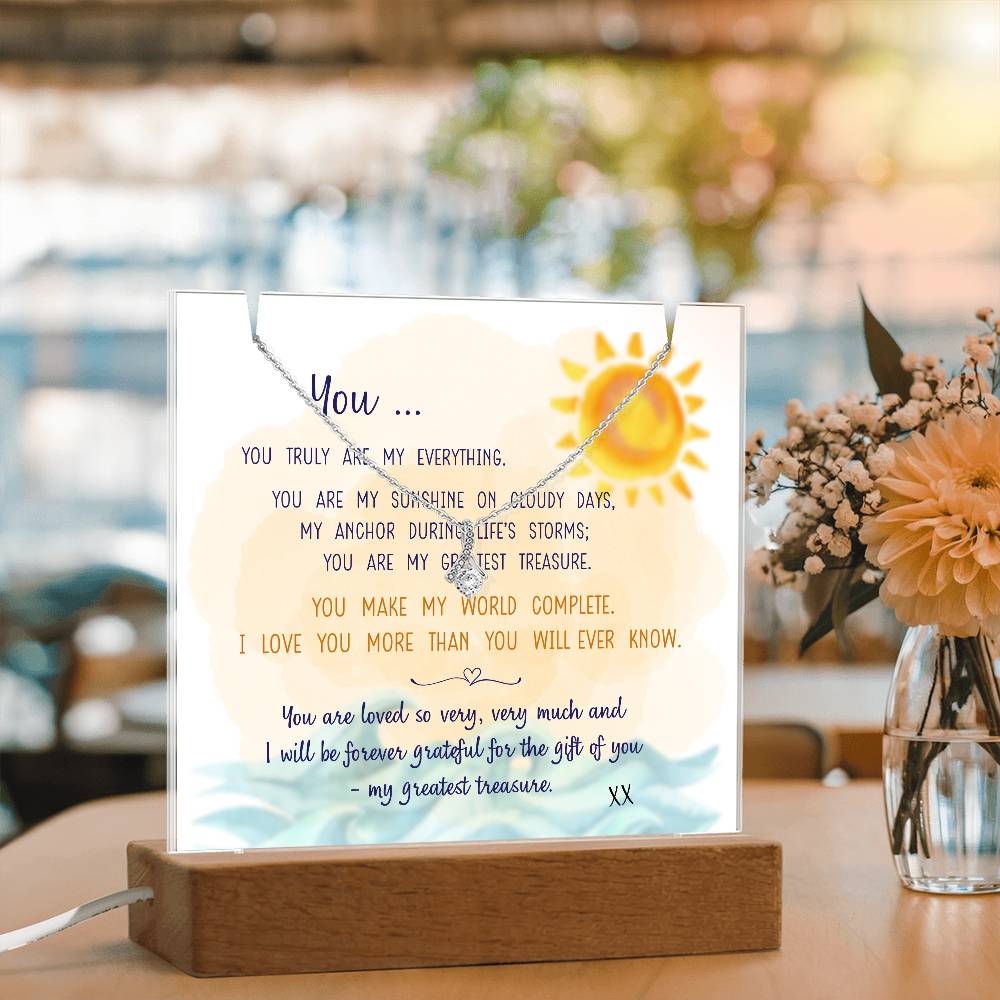 You ...
YOU TRULY ARE MY EVERYTHING.
YOU ARE MY SUNSHINE ON CLOUDY DAYS,
MY ANCHOR DURING LIFE'S STORMS;
YOU ARE MY GREATEST TREASURE.
YOU MAKE MY WORLD COMPLETE.
I LOVE YOU MORE THAN YOU WILL EVER KNOW.
You are loved so very, very much and
I will be forever grateful for the gift of you
- my greatest treasure.
XX